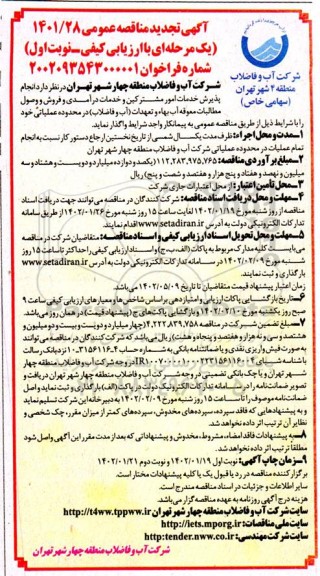 آگهی تجدید مناقصه عمومی ۱۴۰۱/۲۸
(یک مرحله‌ای با ارزیابی کیفی – نوبت اول)
شماره فراخوان ۲۰۰۲۰۹۳۵۴۳۰۰۰۰۰۱
شرکت آب و فاضلاب
منطقه ۴ شهر تهران
(سهامی خاص)
شرکت آب و فاضلاب منطقه چهار شهر تهران در نظر دارد انجام
پذیرش خدمات امور مشترکین و خدمات درآمدی و فروش و وصول
مطالبات معوقه آب بهاء و تعهدات (آب و فاضلاب) در محدوده عملیاتی خود
را با شرایط ذیل از طریق مناقصه عمومی به پیمانکار واجد شرایط واگذار نماید.
۱–مدت و محل اجراء: ظرف مدت یکسال شمسی از تاریخ نخستین ارجاع دستور کار نسبت به انجام
تمام عملیات در محدوده عملیاتی شرکت آب و فاضلاب منطقه چهار شهر تهران
۲–مبلغ برآوردی مناقصه: ۱۱۲,۲۸۳,۹۷۵,۷۶۵ (یکصد و دوازده میلیارد و دویست و هشتاد و سه
میلیون و نهصد و هفتاد و پنج هزار و هفتصد و شصت و پنج) ریال
۳–محل تأمین اعتبار: از محل اعتبارات جاری شرکت
۴–مهلت و محل دریافت اسناد مناقصه: شرکت کنندگان در مناقصه می‌توانند جهت دریافت اسناد
مناقصه از روز شنبه مورخ ۱۴۰۲/۰۱/۱۹ لغایت ساعت ۱۵ روز شنبه مورخ ۱۴۰۲/۰۱/۲۶ از طریق سامانه
تدارکات الکترونیکی دولت به آدرس www.setadiran.ir اقدام نمایند.
۵–مهلت و محل تحویل اسناد ارزیابی کیفی و اسناد مناقصه: متقاضیان شرکت در مناقصه
می‌بایست کلیه مدارک مربوط به پاکات (الف، ب، ج) و اسناد ارزیابی کیفی را حداکثر تا ساعت ۱۵ روز
شنبه مورخ ۱۴۰۲/۰۲/۰۹ در سامانه تدارکات الکترونیکی دولت به آدرس www.setadiran.ir
بارگذاری و ثبت نمایند.
زمان اعتبار پیشنهاد قیمت متقاضیان تا تاریخ ۱۴۰۲/۰۵/۰۹ می‌باشد.
۶–تاریخ بازگشایی پاکات ارزیابی و امتیازدهی براساس شاخص‌ها و معیارهای ارزیابی کیفی ساعت ۹
صبح روز یکشنبه مورخ ۱۴۰۲/۰۲/۱۰ و بازگشایی پاکت‌های ج (پیشنهاد قیمت)، در همان روز می‌باشد.
۷–مبلغ تضمین شرکت در مناقصه ۴,۲۲۲,۸۳۹,۷۵۸ (چهار میلیارد و دویست و بیست و دو میلیون و
هشتصد و سی و نه هزار و هفتصد و پنجاه و هشت) ریال می‌باشد که شرکت کنندگان در مناقصه می‌توانند
به صورت فیش واریزی نقدی و یا ضمانتنامه بانکی به شماره حساب ۱۰۳۱۵۶۱۱۶۰۴ نزد بانک رسالت
در وجه شرکت آب و فاضلاب منطقه چهار
شهر تهران و یا چک بانکی تضمینی در وجه شرکت آب و فاضلاب منطقه چهار شهر تهران دریافت و
تصویر ضمانت‌نامه را در سامانه تدارکات الکترونیک دولت در پاکت (الف) بارگذاری و ثبت نماید و اصل
ضمانت‌نامه موصوف را تا ساعت ۱۵ روز شنبه مورخ ۱۴۰۲/۰۲/۰۹ به دبیرخانه این شرکت تسلیم نماید
و به پیشنهادهایی که فاقد سپرده، سپرده‌های مخدوش، سپرده‌های کمتر از میزان مقرر، چک شخصی و
نظایر آن ترتیب اثر داده نخواهد شد.
۸–به پیشنهادات فاقد امضاء، مشروط، مخدوش و پیشنهاداتی که بعد از مدت مقرر این آگهی واصل شود
مطلقاً ترتیب اثر داده نخواهد شد.
۹–زمان چاپ آگهی: نوبت اول ۱۴۰۲/۰۱/۱۹ و نوبت دوم ۱۴۰۲/۰۱/۲۱
برگزار کننده مناقصه در رد یا قبول یک یا کلیه پیشنهادات مختار است.
سایر اطلاعات و جزئیات در اسناد مناقصه مندرج است.
هزینه درج آگهی روزنامه به عهده مناقصه گزار می‌باشد.
سایت شرکت آب و فاضلاب منطقه چهار شهر تهران http://t4ww.tppww.ir
سایت ملی مناقصات: http://iets.mporg.ir
سایت شرکت مهندسی: http:tender.nww.co.ir
شرکت آب و فاضلاب منطقه چهار شهر تهران